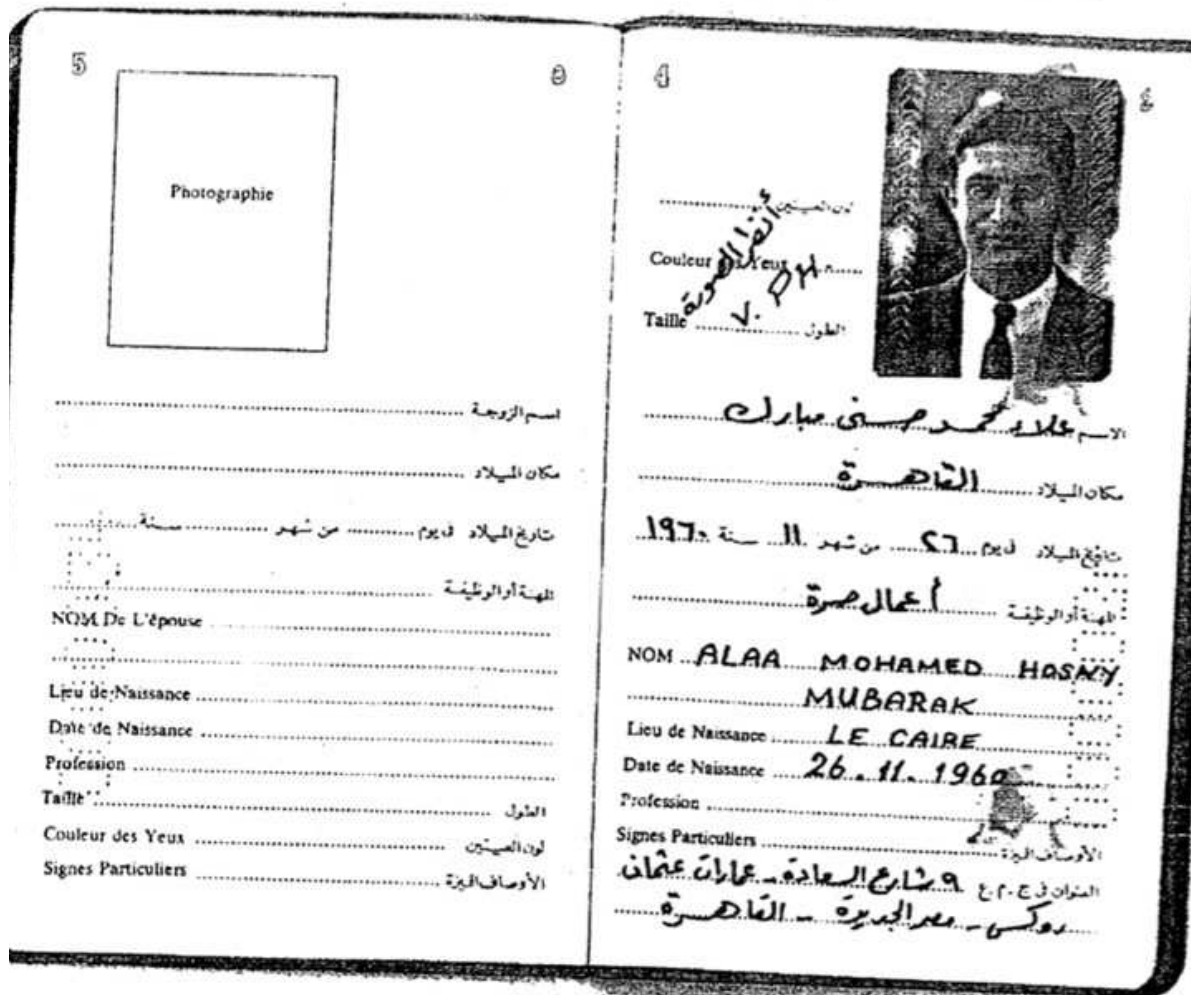 5
Photographie
اسم الزوجة
مكان الميلاد
تاريخ الميلاد فى يوم من شهر سنة
المهنة أو الوظيفة
NOM De L'épouse
Lieu de Naissance
Date de Naissance
Profession
Taille الطول
Couleur des Yeux لون العينين
Signes Particuliers الأوصاف المميزة
4 ٤
لون العينين
Couleur des Yeux
أنظر الصورة
V. PH
Taille الطول
الاسم علاء محمد حسنى مبارك
مكان الميلاد القاهرة
تاريخ الميلاد فى يوم ٢٦ من شهر ١١ سنة ١٩٦٠
المهنة أو الوظيفة أعمال حرة
NOM ALAA MOHAMED HOSNY
MUBARAK
Lieu de Naissance LE CAIRE
Date de Naissance 26.11.1960
Profession
Signes Particuliers الأوصاف المميزة
العنوان فى ج.م.ع ٩ شارع السعادة - عمارات عثمان
روكسى - مصر الجديدة - القاهرة